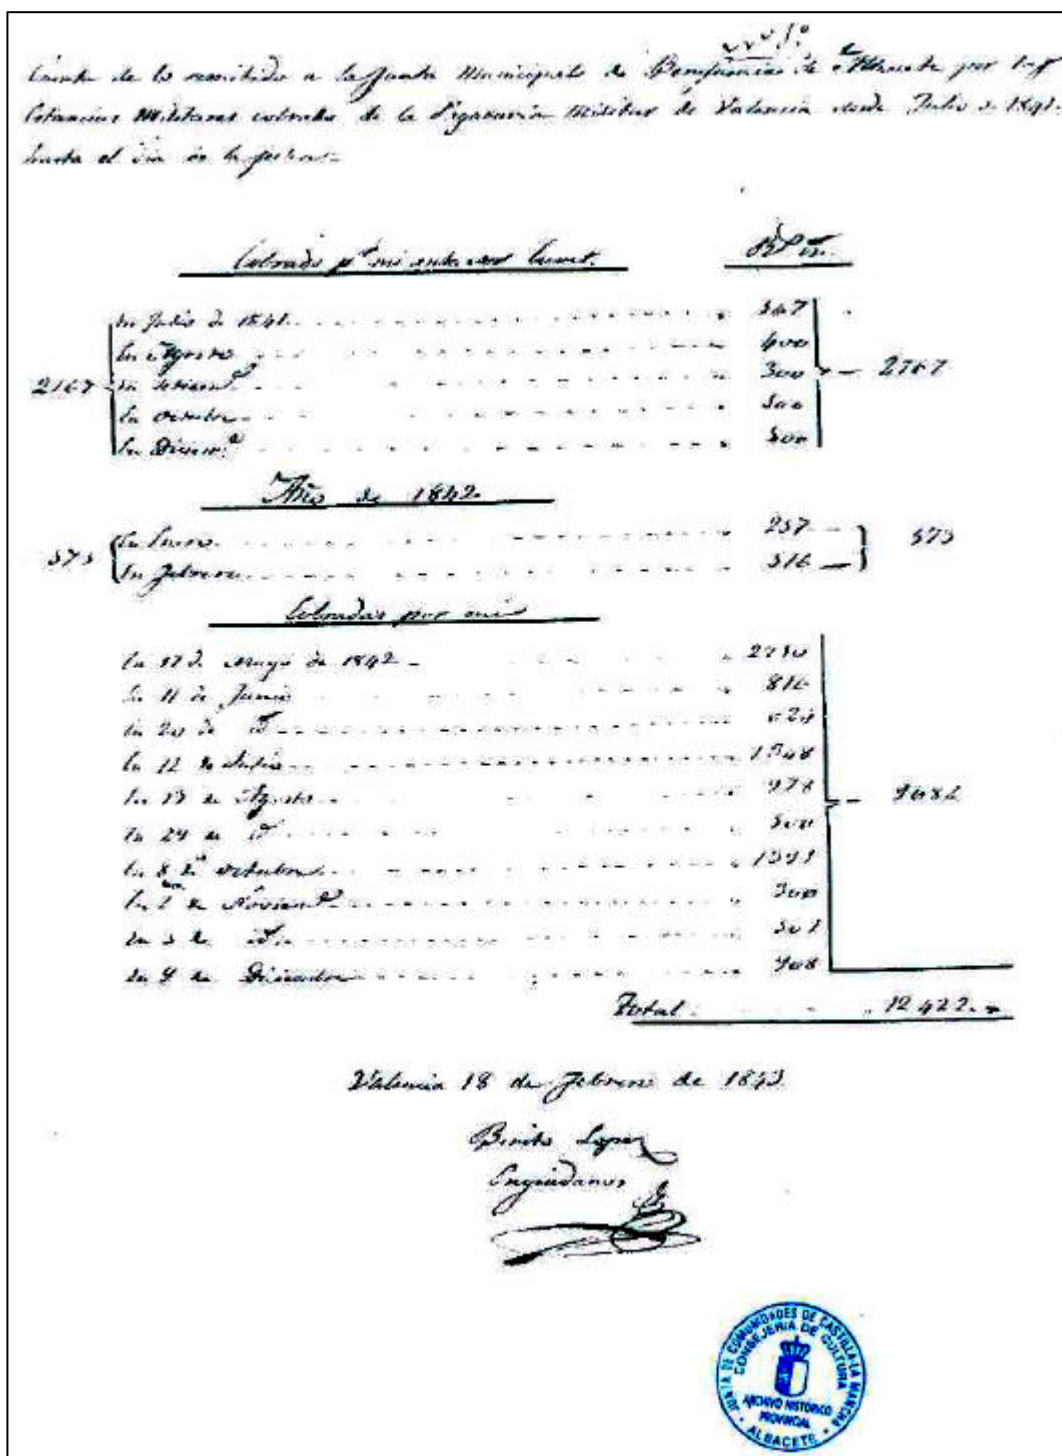 Cuenta de lo remitido a la Junta Municipal de Beneficencia de Albacete por
Estancias Militares cobradas de la Pagaduria Militar de Valencia desde Julio de 1841.
hasta el dia de la fecha
Cobrado pr mi antecesor
Rs vn.
En Julio de 1841. 567
En Agosto 400
2167 En Setiembe 300 2167
En Octubre
En Diciembe
Año de 1842.
En Enero 257
573 573
En Febrero 316
Cobradas por mi
En 17 de Mayo de 1842
En 11 de Junio 816
En 20 de id
En 12 de Julio 1548
En 13 de Agosto 978
En 24 de id
9682
En 8 de Octubre
En de Noviembe 300
En 3 de id
En 9 de Diciembre 908
Total 12422
Valencia 18 de Febrero de 1843
Benito Lopez
Enguidanos
JUNTA DE COMUNIDADES DE CASTILLA-LA MANCHA
CONSEJERIA DE CULTURA
ARCHIVO HISTORICO
PROVINCIAL
ALBACETE